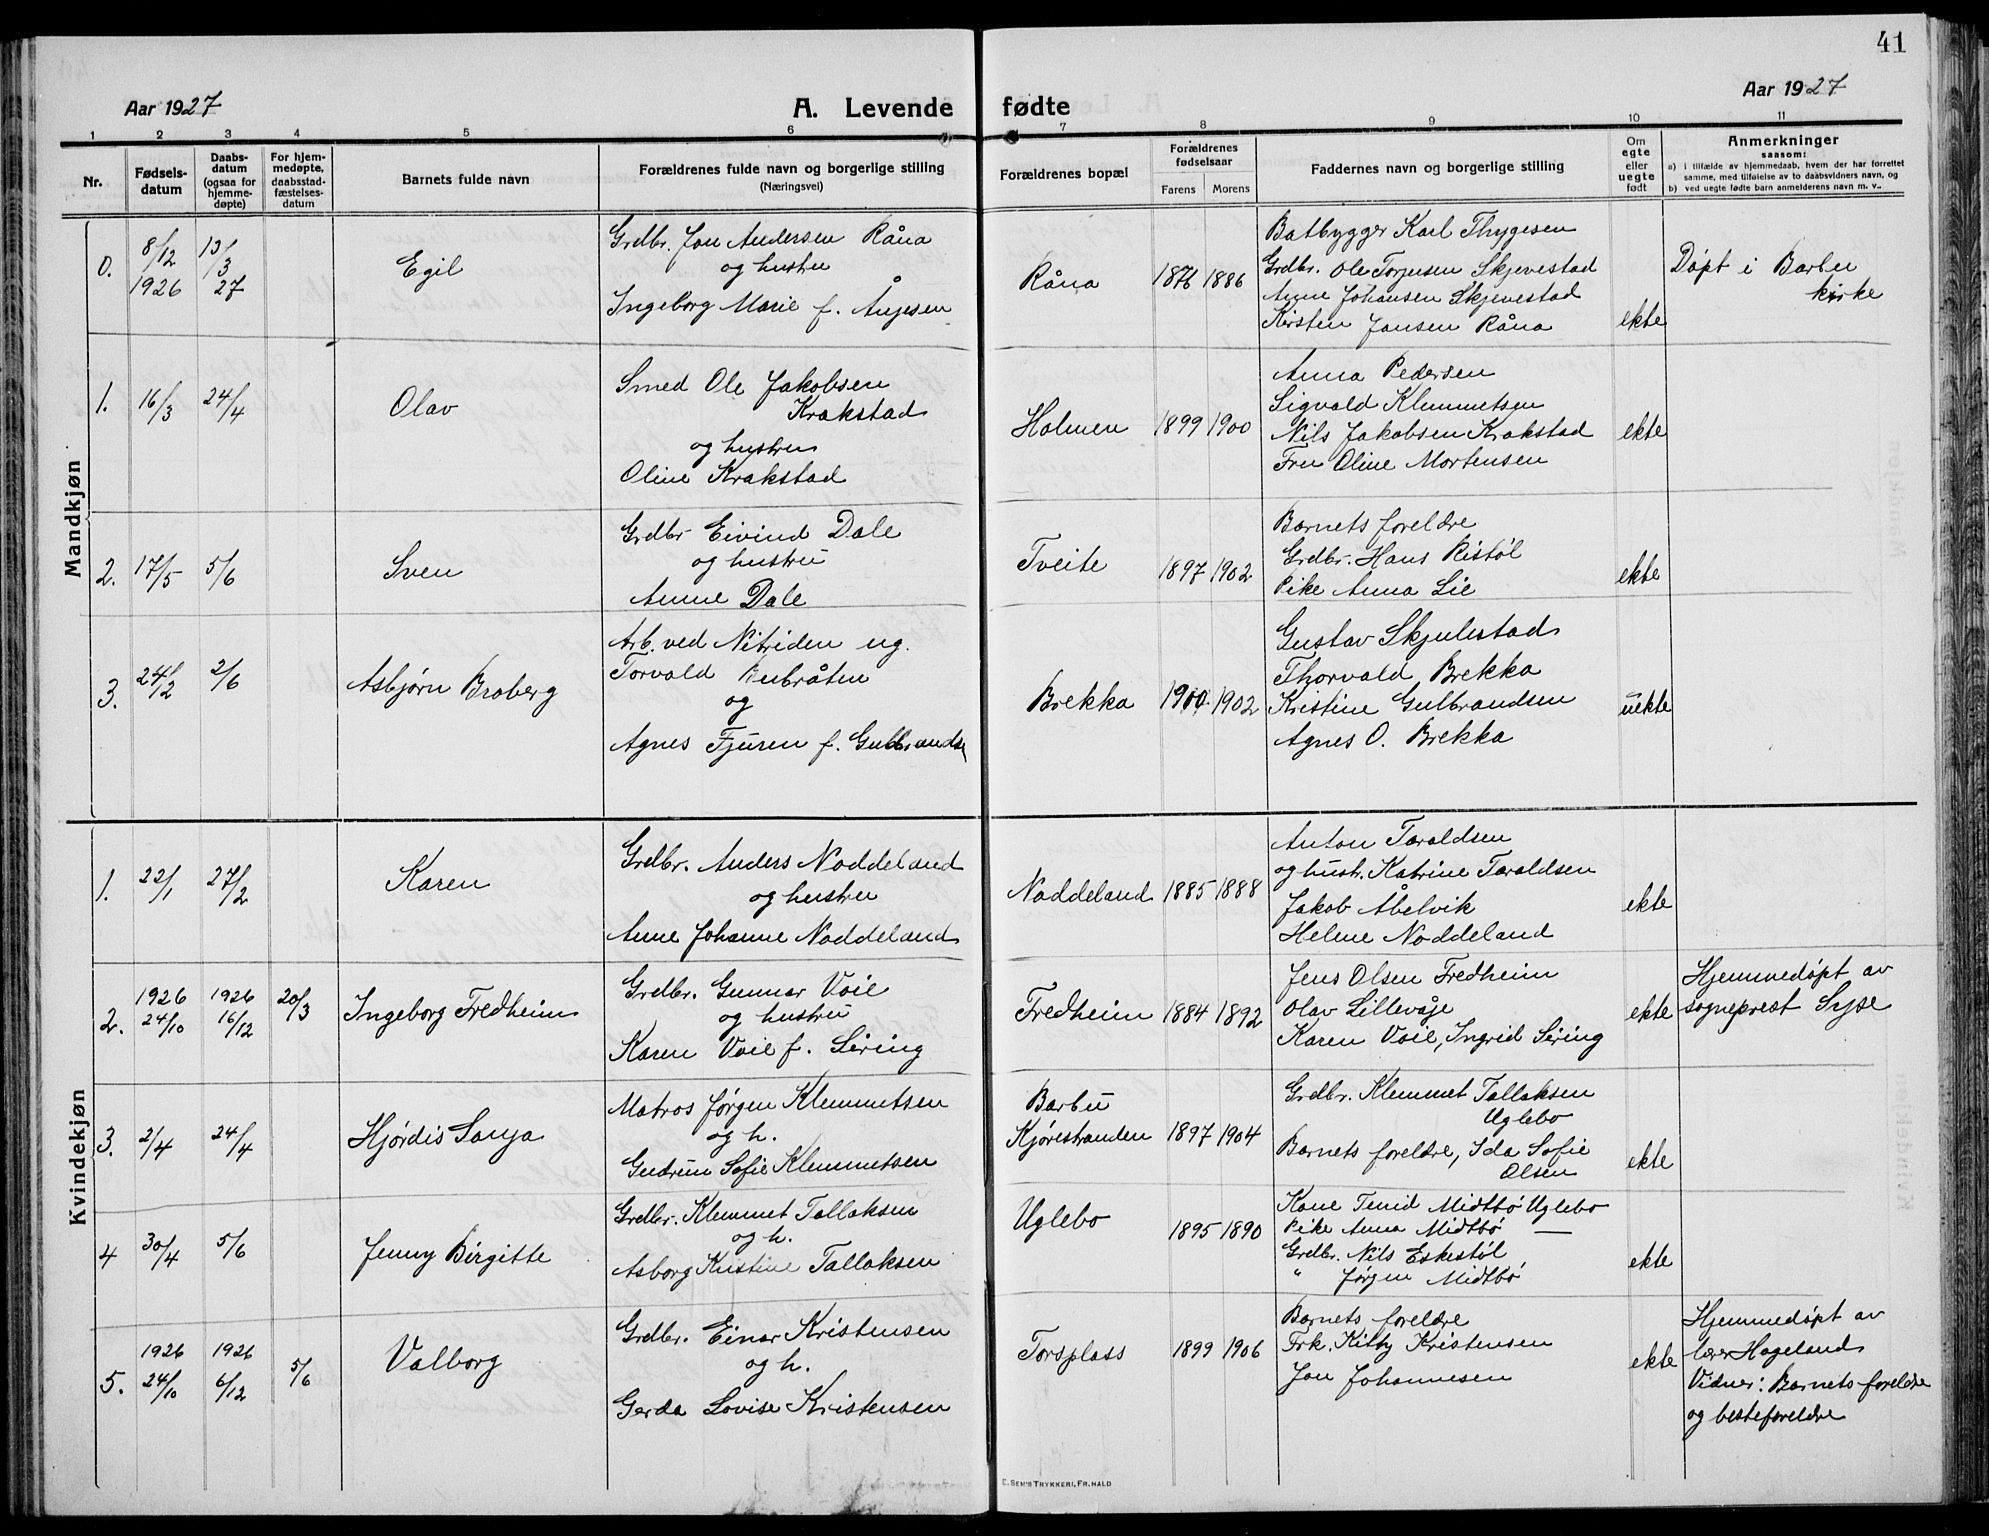 41
Aar 1927
A. Levende fødte
Aar 1927
1 2 3 4 5 6 7 8 9 10 11
Nr.
Fødsels-
datum
Daabs-
datum
(ogsaa for
hjemme-
døpte)
For hjem-
medøpte,
daabsstad-
fæstelses-
datum
Barnets fulde navn
Forældrenes fulde navn og borgerlige stilling
(Næringsvei)
Forældrenes bopæl
Forældrenes
fødselsaar
Farens Morens
Faddernes navn og borgerlige stilling
Om
egte
eller
uegte
født
Anmerkninger
saasom:
a) i tilfælde av hjemmedaab, hvem der har forrettet
samme, med tilføielse av to daabsvidners navn, og
b) ved uegte fødte barn anmelderens navn m. v.
Mandkjøn
0.
8/12
1926
13/3
27
Egil
Grdbr. Jon Andersen Råna
og hustru
Ingeborg Marie f. Ånjesen
Råna
1876 1886
Båtbygger Karl Thygesen
Grdbr. Ole Torjusen Skjevestad
Anne Johansen Skjevestad
Kirsten Jansen Råna
ekte
Døpt i Barbu
kirke
1.
16/3
24/4
Olav
Smed Ole Jakobsen
Krakstad
og hustru
Oline Krakstad
Holmen
1899 1900
Anna Pedersen
Sigvald Klemmetsen
Nils Jakobsen Krakstad
Fru Oline Mortensen
ekte
2.
17/5
5/6
Sven
Grdbr Eivind Dale
og hustru
Anne Dale
Tveite
1897 1902
Barnets foreldre
Grdbr. Hans Ristøl
Pike Anna Lie
ekte
3.
24/2
2/6
Asbjørn Broberg
Arb. ved Nitriden ug.
Torvald Bubråten
og
Agnes Tjuren f. Gulbrands
Brekka
1900 1902
Gustav Skjulestad
Thorvald Brekka
Kristine Gulbrandsen
Agnes O. Brekka
uekte
Kvindekjøn
1.
22/1
27/2
Karen
Grdbr. Anders Noddeland
og hustru
Anne Johanne Noddeland
Noddeland
1885 1888
Anton Taraldsen
og hustr. Katrine Taraldsen
Jakob Åbelvik
Helene Noddeland
ekte
2.
1926
24/10
1926
16/12
20/3
Ingeborg Fredheim
Grdbr. Gunnar Voie
og hustru
Karen Voie f. Liring
Fredheim
1884 1892
Jens Olsen Fredheim
Olav Lillevåje
Karen Voie, Ingrid Liring
ekte
Hjemmedøpt av
sogneprest Syse
3.
2/4
24/4
Hjørdis Sonja
Matros Jørgen Klemmetsen
og h.
Gudrun Sofie Klemmetsen
Barbu
Kjørestranden
1897 1904
Grdbr. Klemmet Tallaksen
Uglebo
Barnets foreldre, Ida Sofie
Olsen
ekte
4
30/4
5/6
Jenny Birgitte
Grdbr. Klemmet Tallaksen
og h.
Asborg Kristine Tallaksen
Uglebo
1895 1890
Kone Tenid Midtbø Uglebo
Pike Anna Midtbø —
Grdbr. Nils Eskestøl
" Jørgen Midtbø
ekte
5.
1926
24/10
1926
6/12
5/6
Valborg
Grdbr. Einar Kristensen
og h.
Gerda Lovise Kristensen
Torsplass
1899 1906
Barnets foreldre
Frk. Kitty Kristensen
Jon Johannesen
ekte
Hjemmedøpt av
lærer Hageland
Vidner: Barnets foreldre
og besteforeldre
E. SEM'S TRYKKERI, FR.HALD